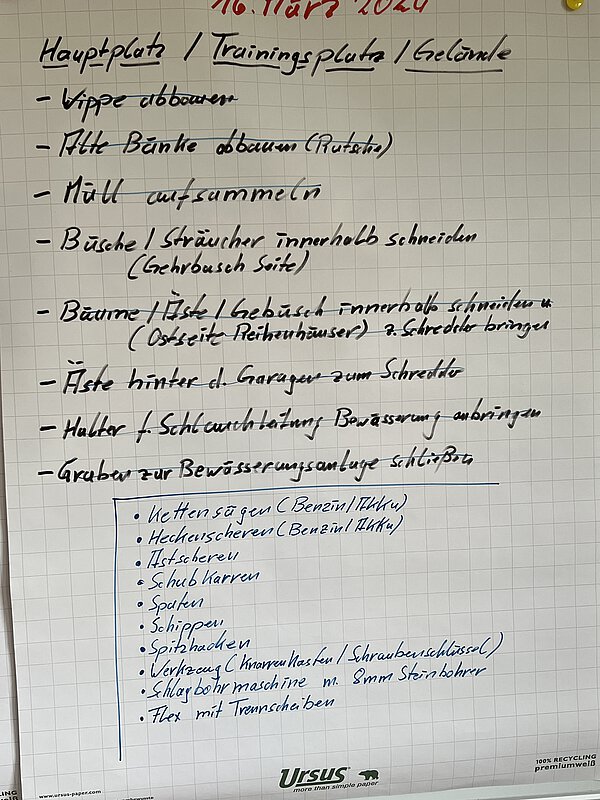 16. März 2024
Hauptplatz / Trainingsplatz / Gelände
- Wippe abbauen
- Alte Bänke abbauen (Rutsche)
- Müll aufsammeln
- Büsche / Sträucher innerhalb schneiden
(Gehrbusch Seite)
- Bäume / Äste / Gebüsch innerhalb schneiden u
(Ostseite Reihenhäuser) z. Schredder bringen
- Äste hinter d. Garagen zum Schredder
- Halter f. Schlauchleitung Bewässerung anbringen
- Graben zur Bewässerungsanlage schließen
• Kettensägen (Benzin/Akku)
• Heckenscheren (Benzin/Akku)
• Astscheren
• Schubkarren
• Spaten
• Schippen
• Spitzhacken
• Werkzeug (Knarrenkasten / Schraubenschlüssel)
• Schlagbohrmaschine m. 8mm Steinbohrer
• Flex mit Trennscheiben
Ursus
more than simple paper
www.ursus-paper.com
100% RECYCLING
premiumweiß